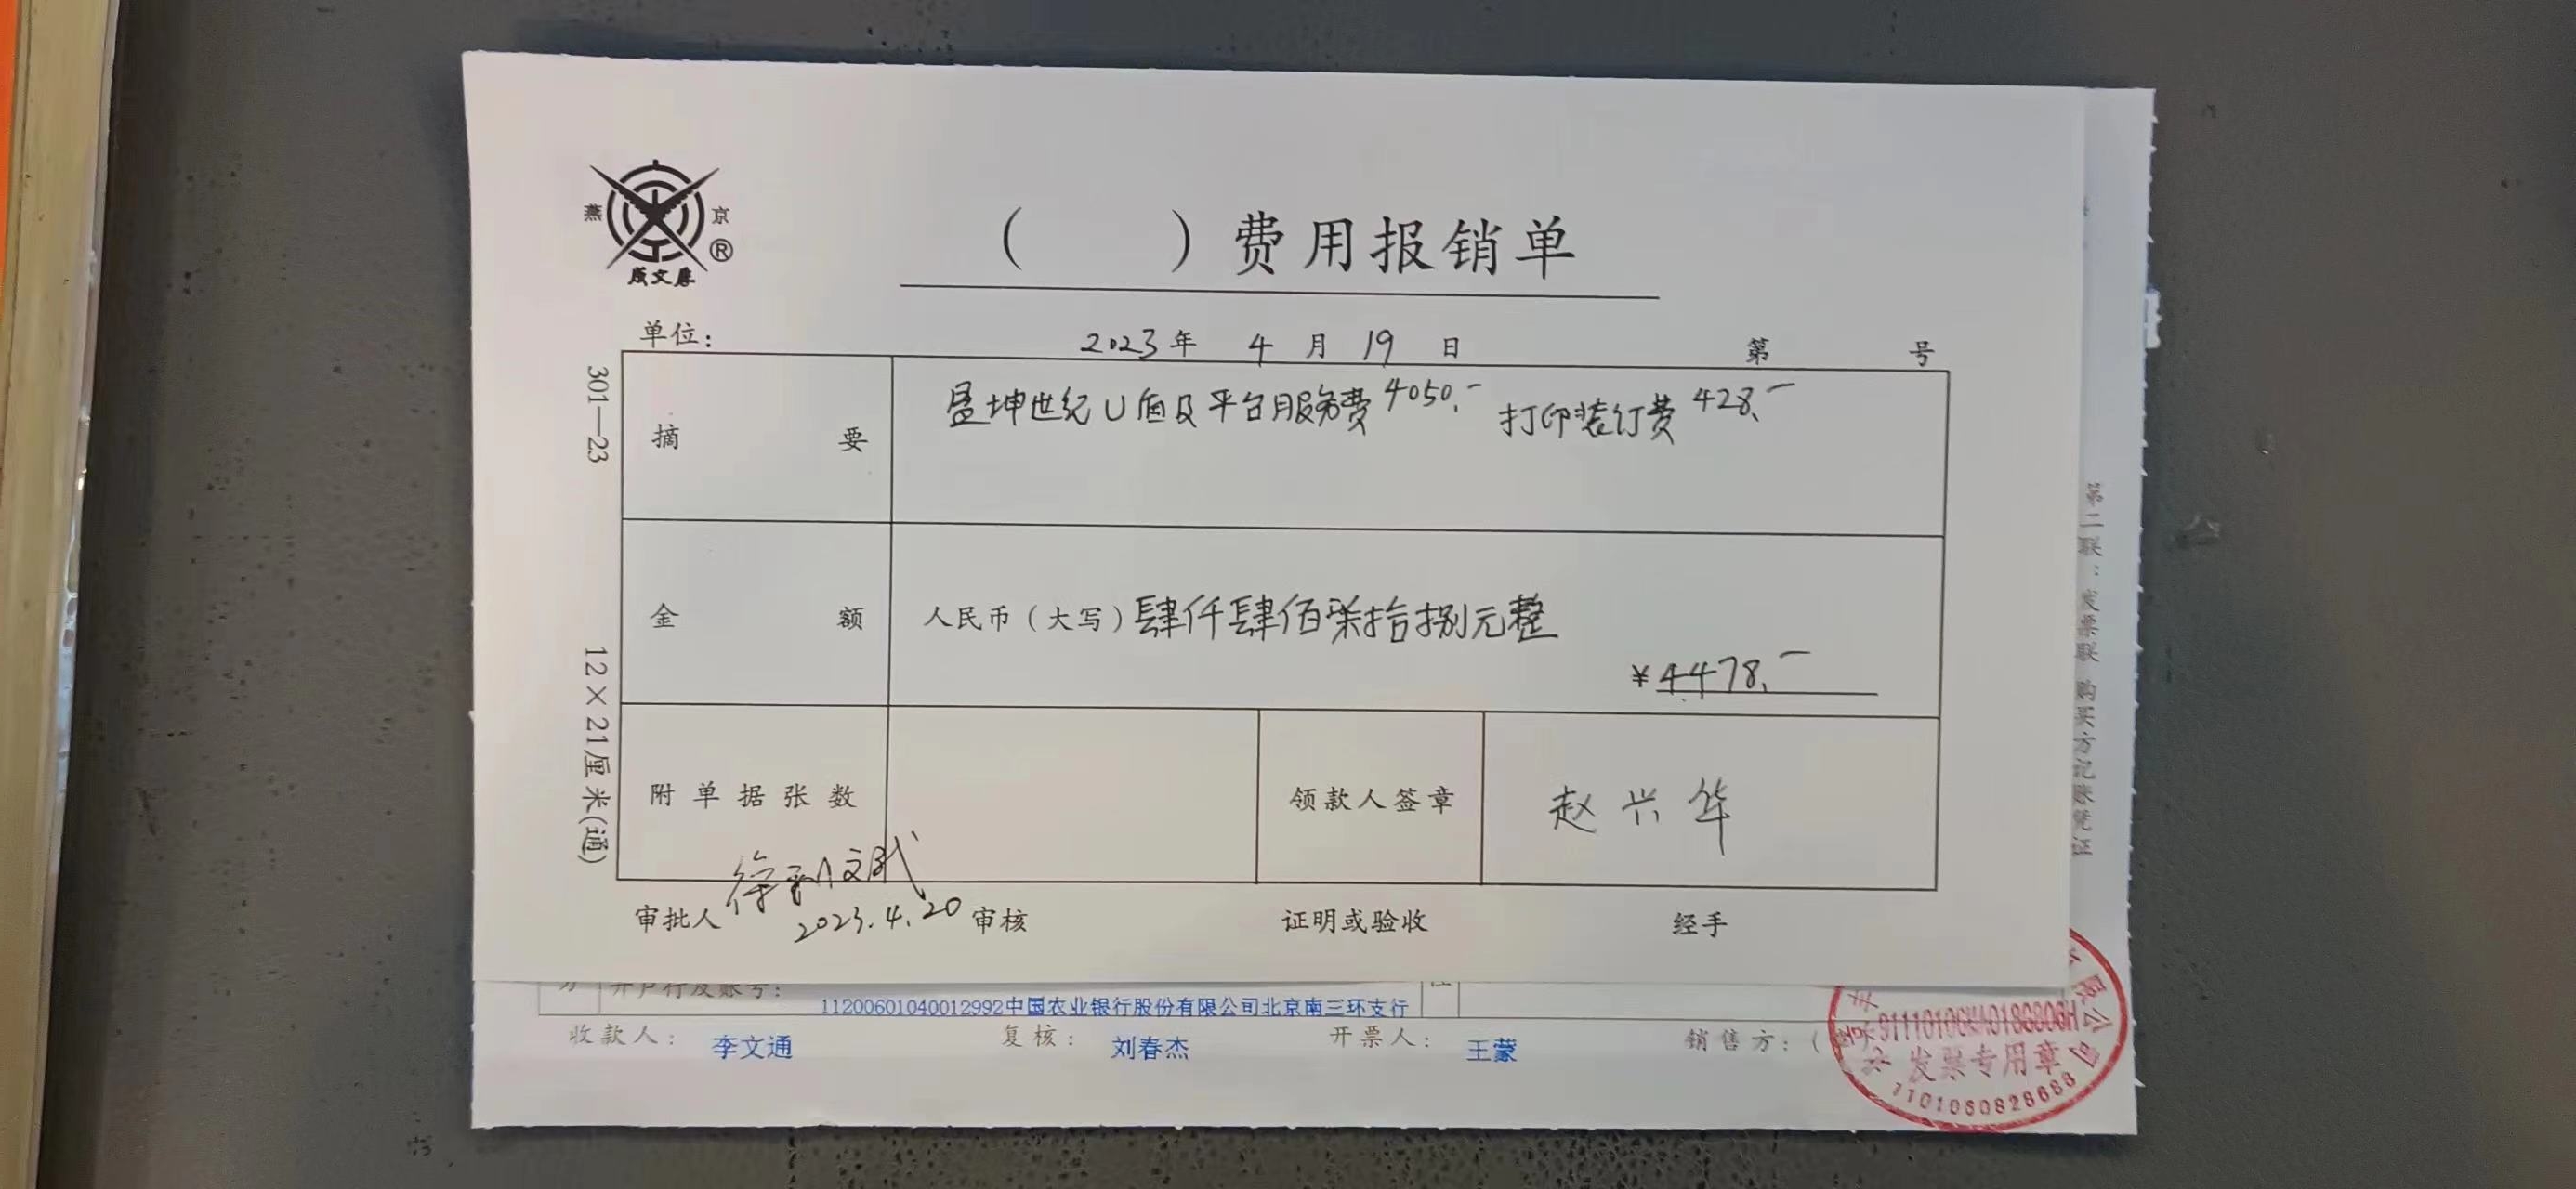 燕 京 ®
成文厚
（ ）费用报销单
单位： 2023年 4 月 19 日 第 号
摘 要 盈坤世纪U盾及平台服务费4050.- 打印装订费428.-
金 额 人民币（大写）肆仟肆佰柒拾捌元整
¥4478.-
附单据张数 领款人签章 赵兴华
审批人 2023.4.20 审核 证明或验收 经手
301—23 12×21厘米(通)
第二联：发票联 购买方记账凭证
开户行及账号：
11200601040012992中国农业银行股份有限公司北京南三环支行
收款人： 李文通 复核： 刘春杰 开票人： 王蒙 销售方：（
限公司
发票专用章
1101060828688